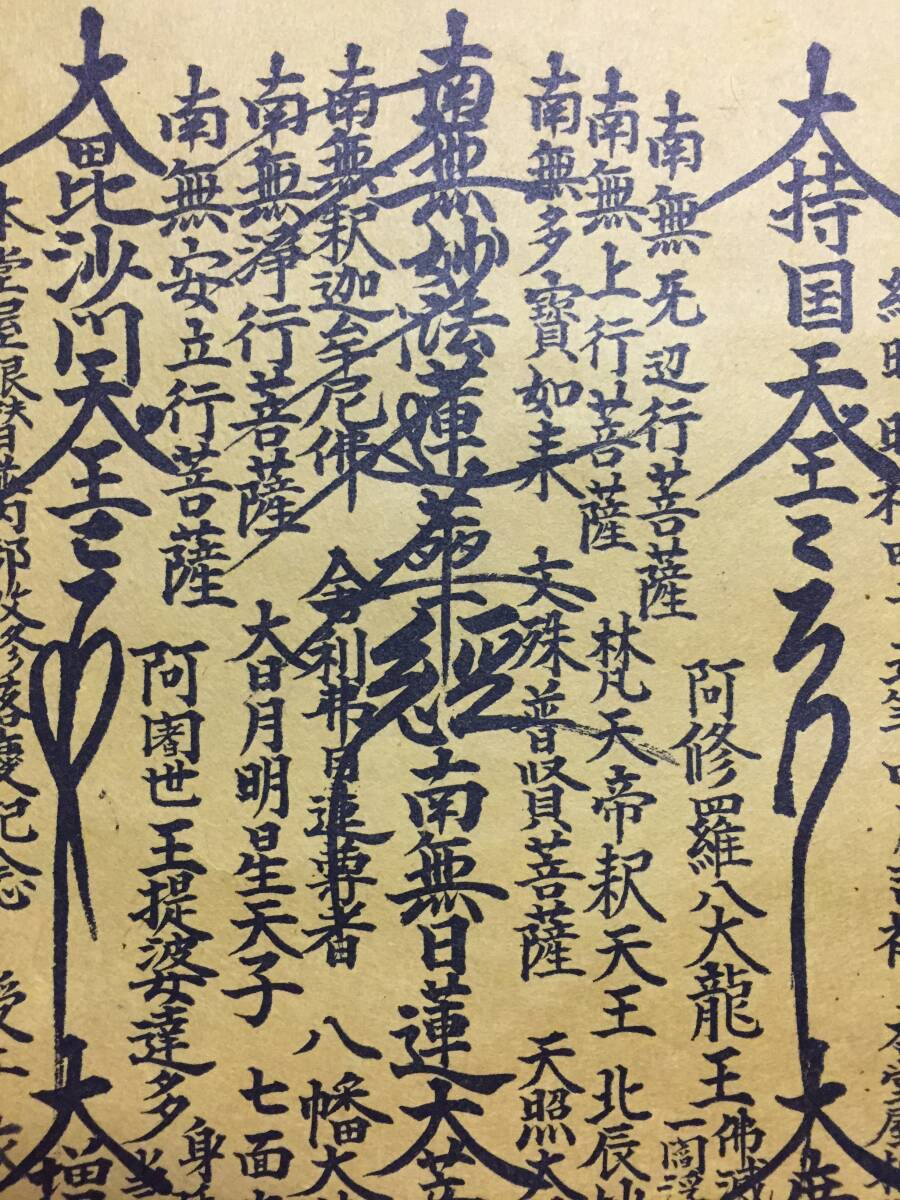 大持国天王
南無无辺行菩薩
南無上行菩薩
南無多寳如来
南無妙法蓮華經
南無釈迦牟尼佛
南無浄行菩薩
南無安立行菩薩
大毘沙門天王
阿修羅八大龍王
梵天帝釈天王
文殊普賢菩薩
南無日蓮大菩
舎利弗目連尊者
大日月明星天子
阿闍世王提婆達多
佛滅
一閻浮
北辰
天照大
八幡大
七面
身
大
大増